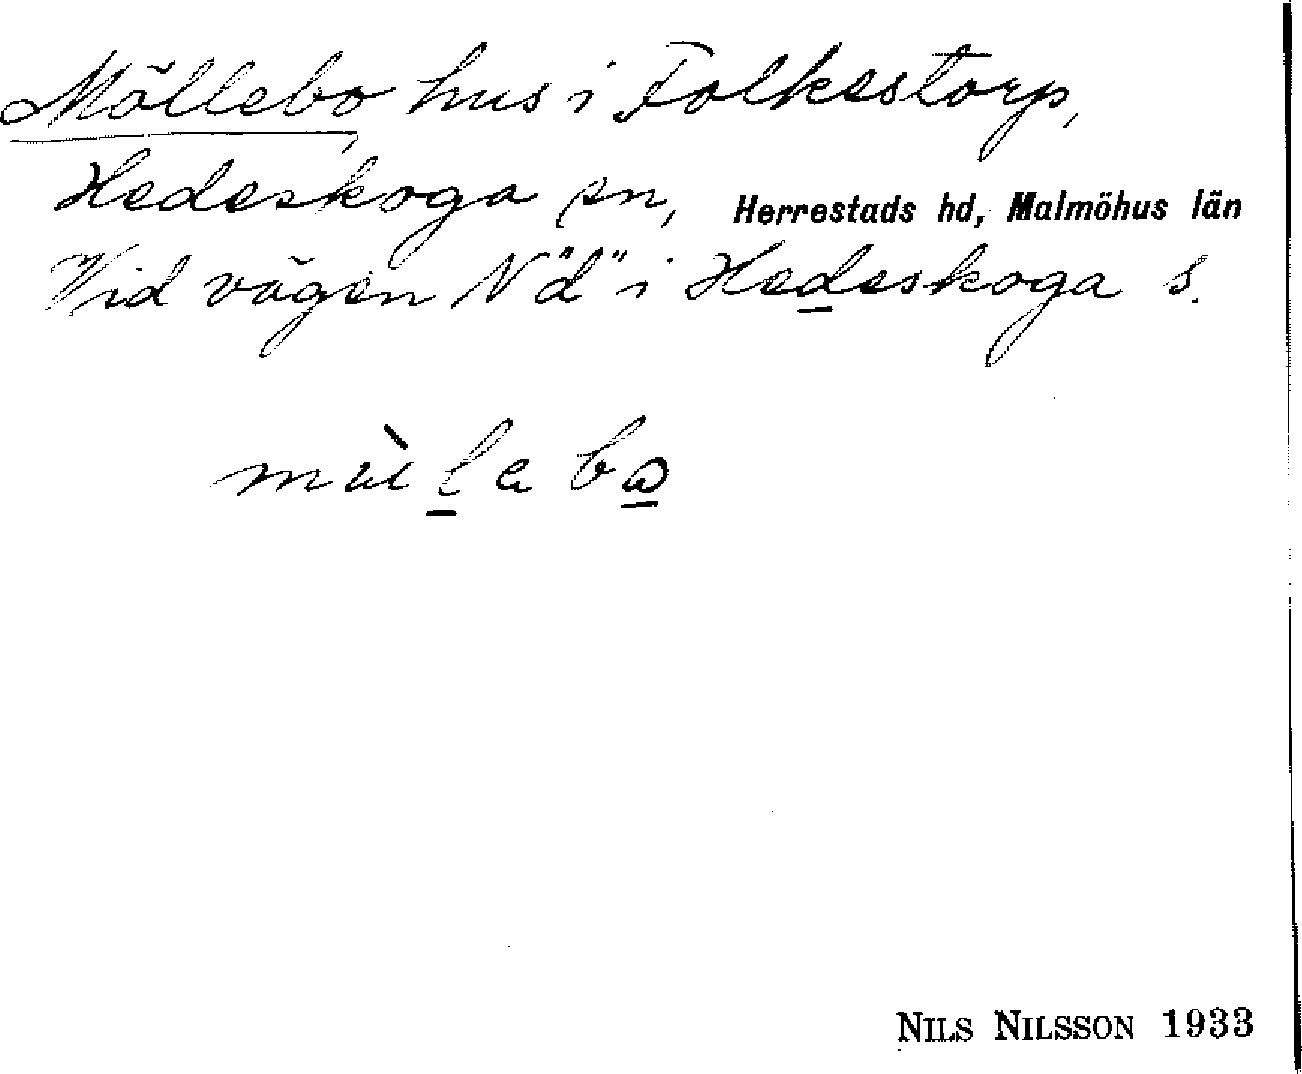 Möllebo, hus i Folkestorp,
Hedeskoga sn, Herrestads hd, Malmöhus län
Vid vägen N "d" i Hedeskoga s.
NILS NILSSON 1933